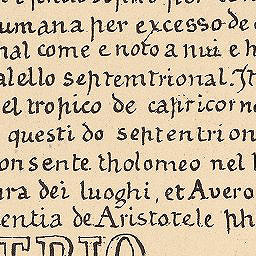 umana per excesso de
nal come e noto a nui e h
alello septemtrional. It
el tropico de capricorn
questi do septentrion
onsente. tholomeo nel l
ura dei luoghi, et Avero
entia de Aristotele ph
TERIO